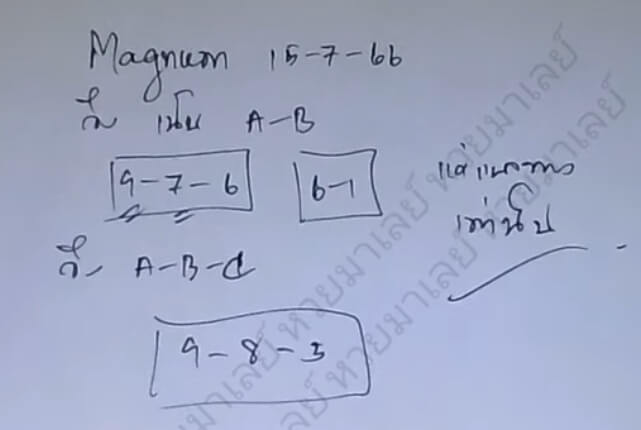 Magnum 15-7-66
วิ่ง เน้น A-B
9-7-6 6-1
แค่แนวทาง
เท่านั้น
วิ่ง A-B-C
9-8-5
หวยมาเลย์ หวยมาเลย์
หวยมาเลย์ หวยมาเลย์